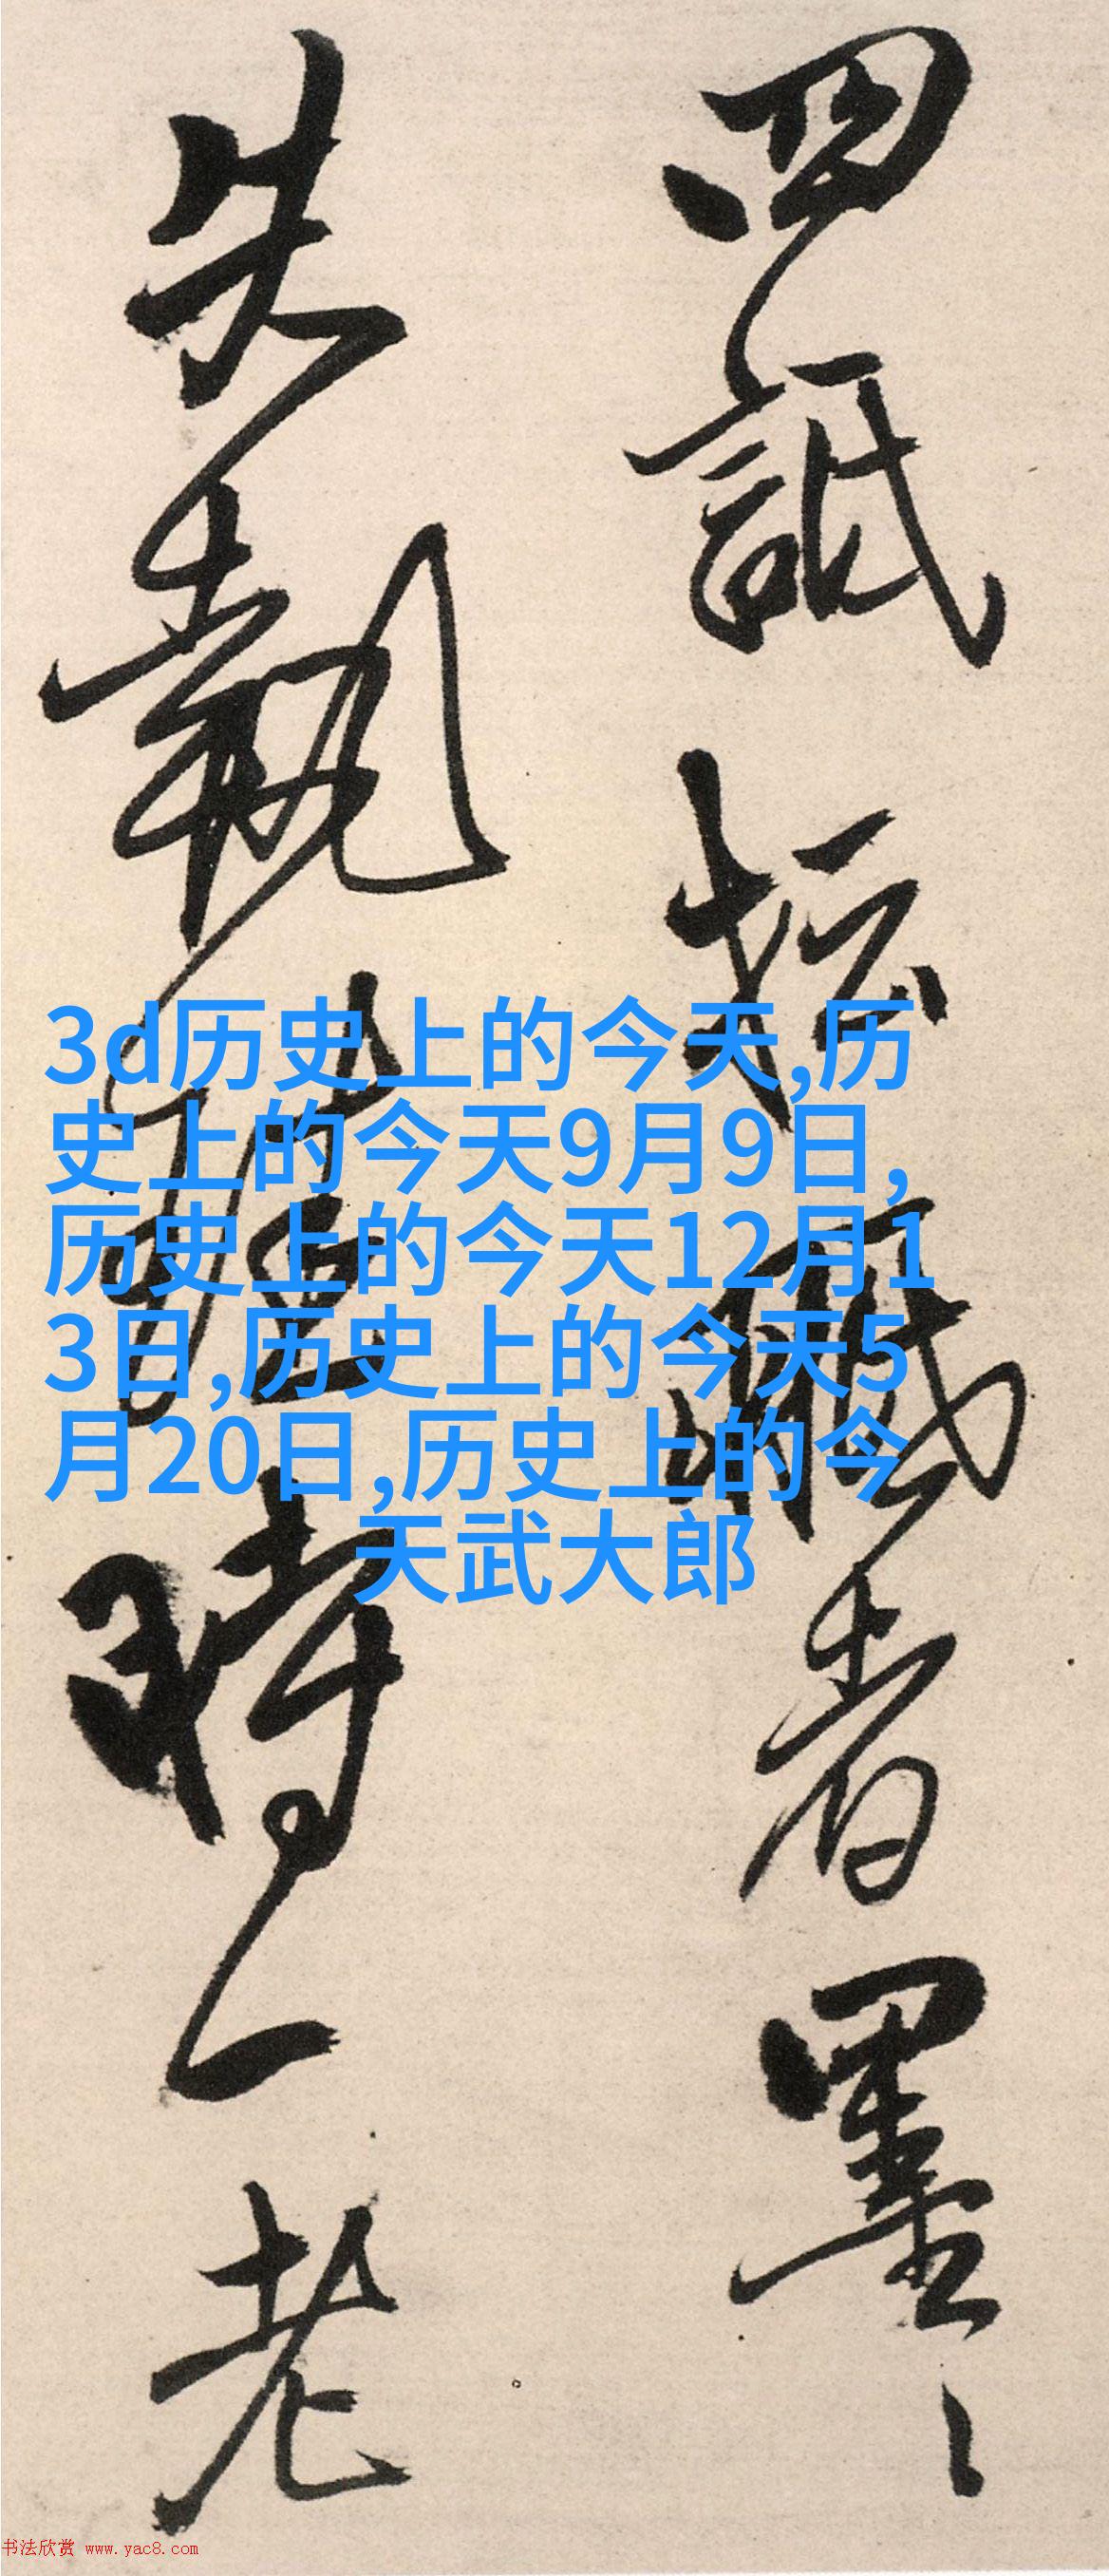 四詆坛職者墨〻
失執理時一老
3d历史上的今天,历
史上的今天9月9日,
历史上的今天12月1
3日,历史上的今天5
月20日,历史上的今
天武大郎
书法欣赏 www.yac8.com